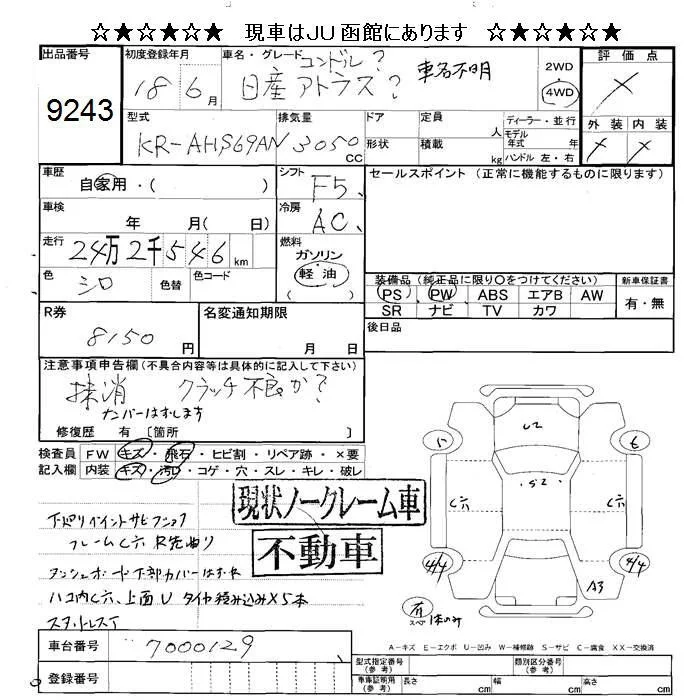 ☆★☆★☆★ 現車はJU函館にあります ☆★☆★☆★
出品番号
9243
初度登録年月
18 6月
車名・グレード
コンドル?
日産アトラス? 車名不明
2WD
4WD
評価点
×
型式
KR-AHS69AN
排気量
3050 CC
ドア
形状
定員 人
積載 kg
ディーラー・並行
モデル年式 年
ハンドル 左・右
外装 内装
× ×
車歴
自家用・( )
シフト
F5
車検
年 月( 日)
冷房
AC
走行
24万2千546 km
燃料
ガソリン
軽油
( )
色
シロ
色替
色コード
セールスポイント(正常に機能するものに限ります)
装備品(純正品に限り○をつけてください)
PS PW ABS エアB AW
SR ナビ TV カワ
新車保証書
有・無
後日品
R券
8150 円
名変通知期限
月 日
注意事項申告欄(不具合内容等は具体的に記入して下さい)
抹消 クラッチ不良か?
ナンバーはずします
修復歴 有 〔箇所 〕
検査員 FW キズ・飛石・ヒビ割・リペア跡・×要
記入欄 内装 キズ・汚レ・コゲ・穴・スレ・キレ・破レ
現状ノークレーム車
不動車
フレームC穴
ダッシュボード下部カバーはずれ
ハコ内C穴、上面U タイヤ積み込み×5本
スタットレスT
U2
5
6
S2
C穴
C穴
4/4
4/4
A3
スペ
車台番号
7000129
登録番号
A-キズ E-エクボ U-凹み W-補修跡 S-サビ C-腐食 XX-交換済
型式指定番号(参考)
類別区分番号(参考)
車庫証明用(参考) 長さ cm 幅 cm 高さ cm